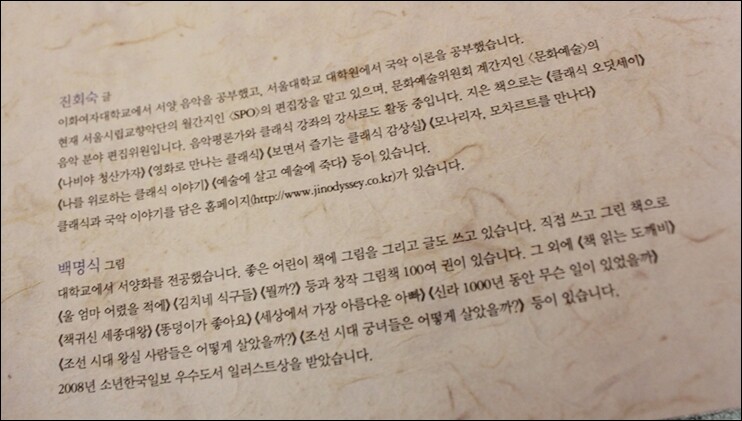 진회숙 글
이화여자대학교에서 서양 음악을 공부했고, 서울대학교 대학원에서 국악 이론을 공부했습니다.
현재 서울시립교향악단의 월간지인 〈SPO〉의 편집장을 맡고 있으며, 문화예술위원회 계간지인 〈문화예술〉의
음악 분야 편집위원입니다. 음악평론가와 클래식 강좌의 강사로도 활동 중입니다. 지은 책으로는 《클래식 오딧세이》
《나비야 청산가자》《영화로 만나는 클래식》《보면서 즐기는 클래식 감상실》《모나리자, 모차르트를 만나다》
《나를 위로하는 클래식 이야기》《예술에 살고 예술에 죽다》 등이 있습니다.
클래식과 국악 이야기를 담은 홈페이지(http://www.jinodyssey.co.kr)가 있습니다.
백명식 그림
대학교에서 서양화를 전공했습니다. 좋은 어린이 책에 그림을 그리고 글도 쓰고 있습니다. 직접 쓰고 그린 책으로
《울 엄마 어렸을 적에》《김치네 식구들》《뭘까?》 등과 창작 그림책 100여 권이 있습니다. 그 외에 《책 읽는 도깨비》
《책귀신 세종대왕》《똥덩이가 좋아요》《세상에서 가장 아름다운 아빠》《신라 1000년 동안 무슨 일이 있었을까》
《조선 시대 왕실 사람들은 어떻게 살았을까?》《조선 시대 궁녀들은 어떻게 살았을까?》 등이 있습니다.
2008년 소년한국일보 우수도서 일러스트상을 받았습니다.